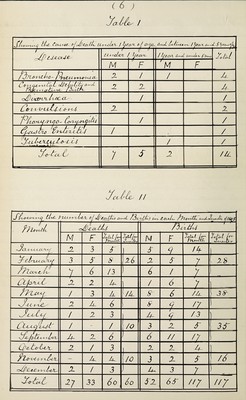 (6)
Table I
Showing the Causes of Death under 1 Year of age and between 1 Year and
Disease under 1 Year 1 Year and under Total
M F M F
Broncho Pneumonia 2 1 1 4
Congenital Debility and Premature Birth 2 2 4
Diarrhoea 1 1
Convulsions 2 2
Pharyngo Laryngitis 1 1
Gastro Enteritis 1 1
Tuberculosis 1 1
Total 7 5 2 14
Table II
Showing the number of Deaths and Births in each Month and
Month Deaths Births
M F Total for Month Total for Quarter M F Total for Month Total for Quarter
January 2 3 5 5 9 14
February 3 5 8 26 2 5 7 28
March 7 6 13 6 1 7
April 2 2 4 1 6 7
May 1 3 4 14 8 6 14 38
June 2 4 6 8 9 17
July 1 2 3 4 9 13
August 1 - 1 10 3 2 5 35
September 4 2 6 6 11 17
October 2 1 3 2 2 4
November - 4 4 10 3 2 5 16
December 2 1 3 4 3 7
Total 27 33 60 60 52 65 117 117